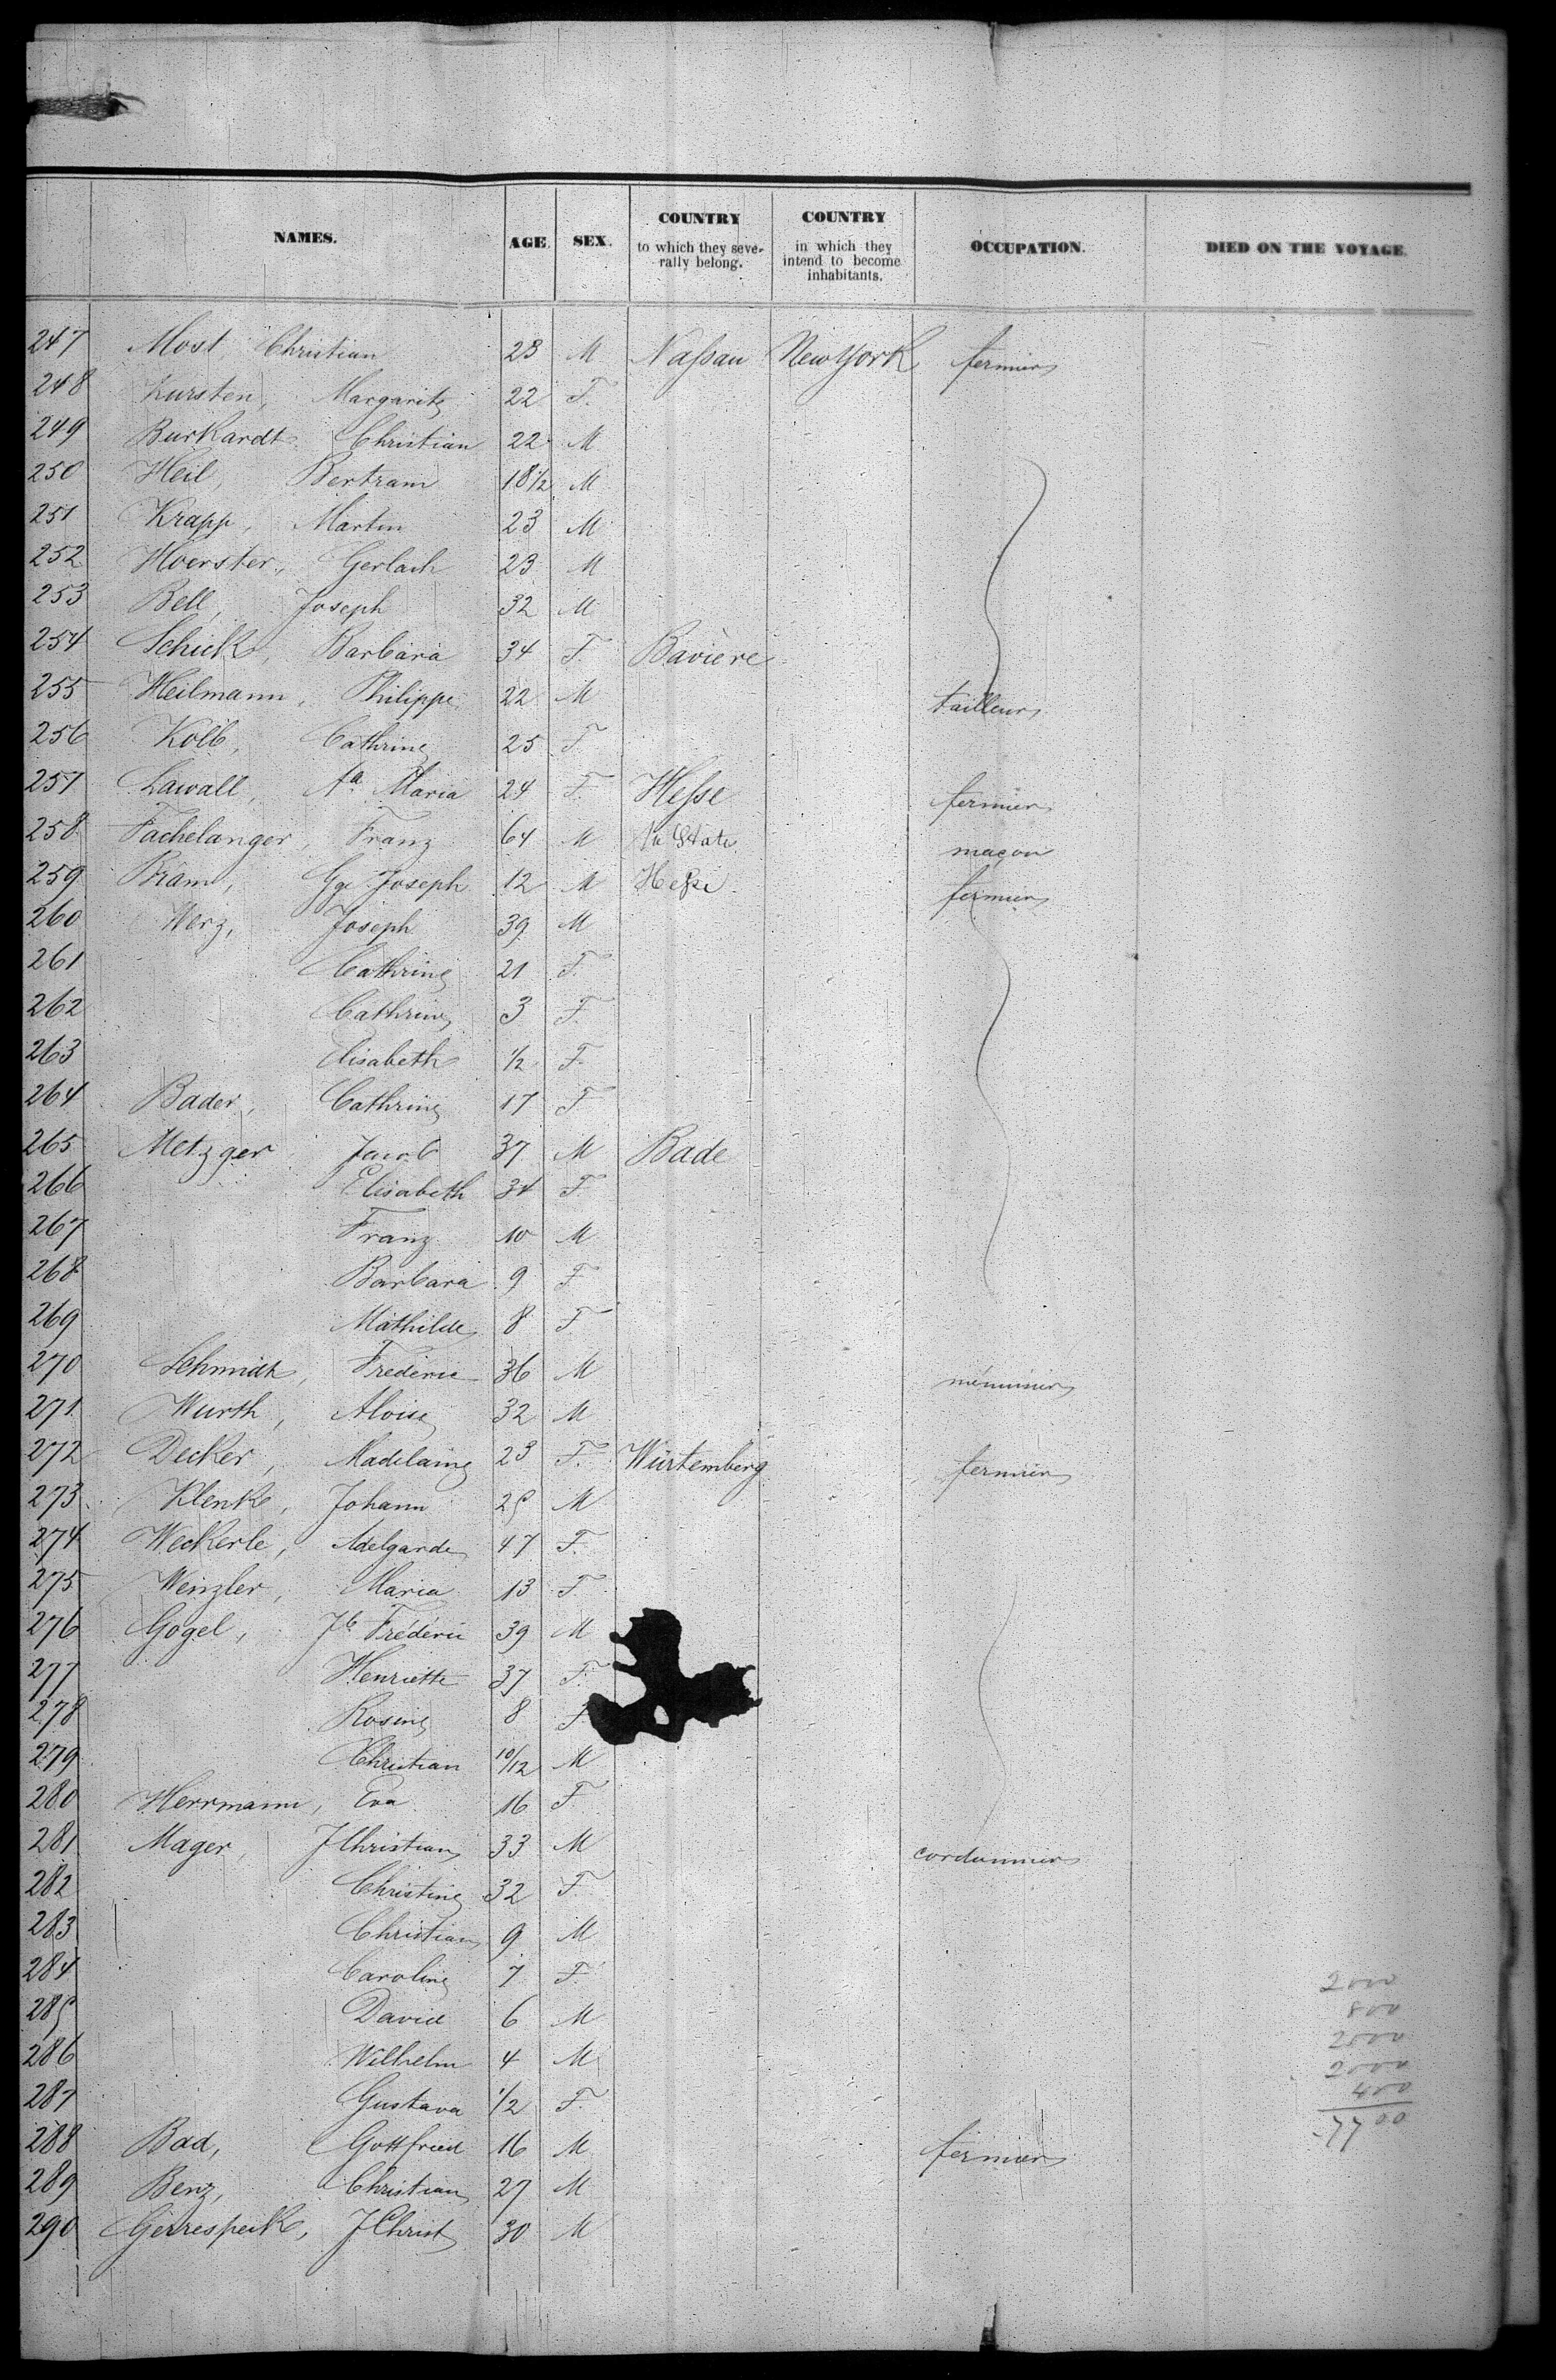 NAMES. AGE. SEX. COUNTRY to which they severally belong. COUNTRY in which they intend to become inhabitants. OCCUPATION. DIED ON THE VOYAGE.
247 Most, Christian 23 M Naſsau New York fermier
248 Kursten, Margarite 22 F.
249 Burkardt, Christian 22 M
250 Heil, Bertram 18 1/2 M
251 Krapp, Martin 23 M
252 Hoerster, Gerlach 23 M
253 Bell, Joseph 32 M
254 Schick, Barbara 34 F. Bavière
255 Heilmann, Philippe 22 M tailleur
256 Kolb, Cathrine 25 F.
257 Lawall, Aa. Maria 24 F. Heſse fermier
258 Fachelanger, Franz 64 M State maçon
259 Bram, Gge Joseph 12 M Heſse fermier
260 Werz, Joseph 39 M
261 Cathrine 21 F.
262 Cathrine 3 F.
263 Elisabeth 1/2 F.
264 Bader, Cathrine 17 F
265 Metzger Jacob 37 M Bade
266 Elisabeth 34 F
267 Franz 10 M
268 Barbara 9 F
269 Mathilde 8 F
270 Schmidt, Frédéric 36 M ménuisier
271 Wurth, Aloise 32 M
272 Decker, Madelaine 23 F. Würtemberg fermier
273 Klenk, Johann 25 M
274 Weckerle, Adelgarde 47 F.
275 Wenzler, Maria 13 F
276 Gogel, Jb Frédéric 39 M
277 Henriette 37 F.
278 Rosine 8 F
279 Christian 10/12 M
280 Herrmann, Eva 16 F
281 Mager, J Christian 33 M cordonnier
282 Christine 32 F.
283 Christian 9 M
284 Caroline 7 F.
285 David 6 M
286 Wilhelm 4 M
287 Gustava 1/2 F.
288 Bad, Gottfried 16 M fermier
289 Benz, Christian 27 M
290 Gerrespeck, J Christ 30 M
2000
800
2500
2000
400
7700